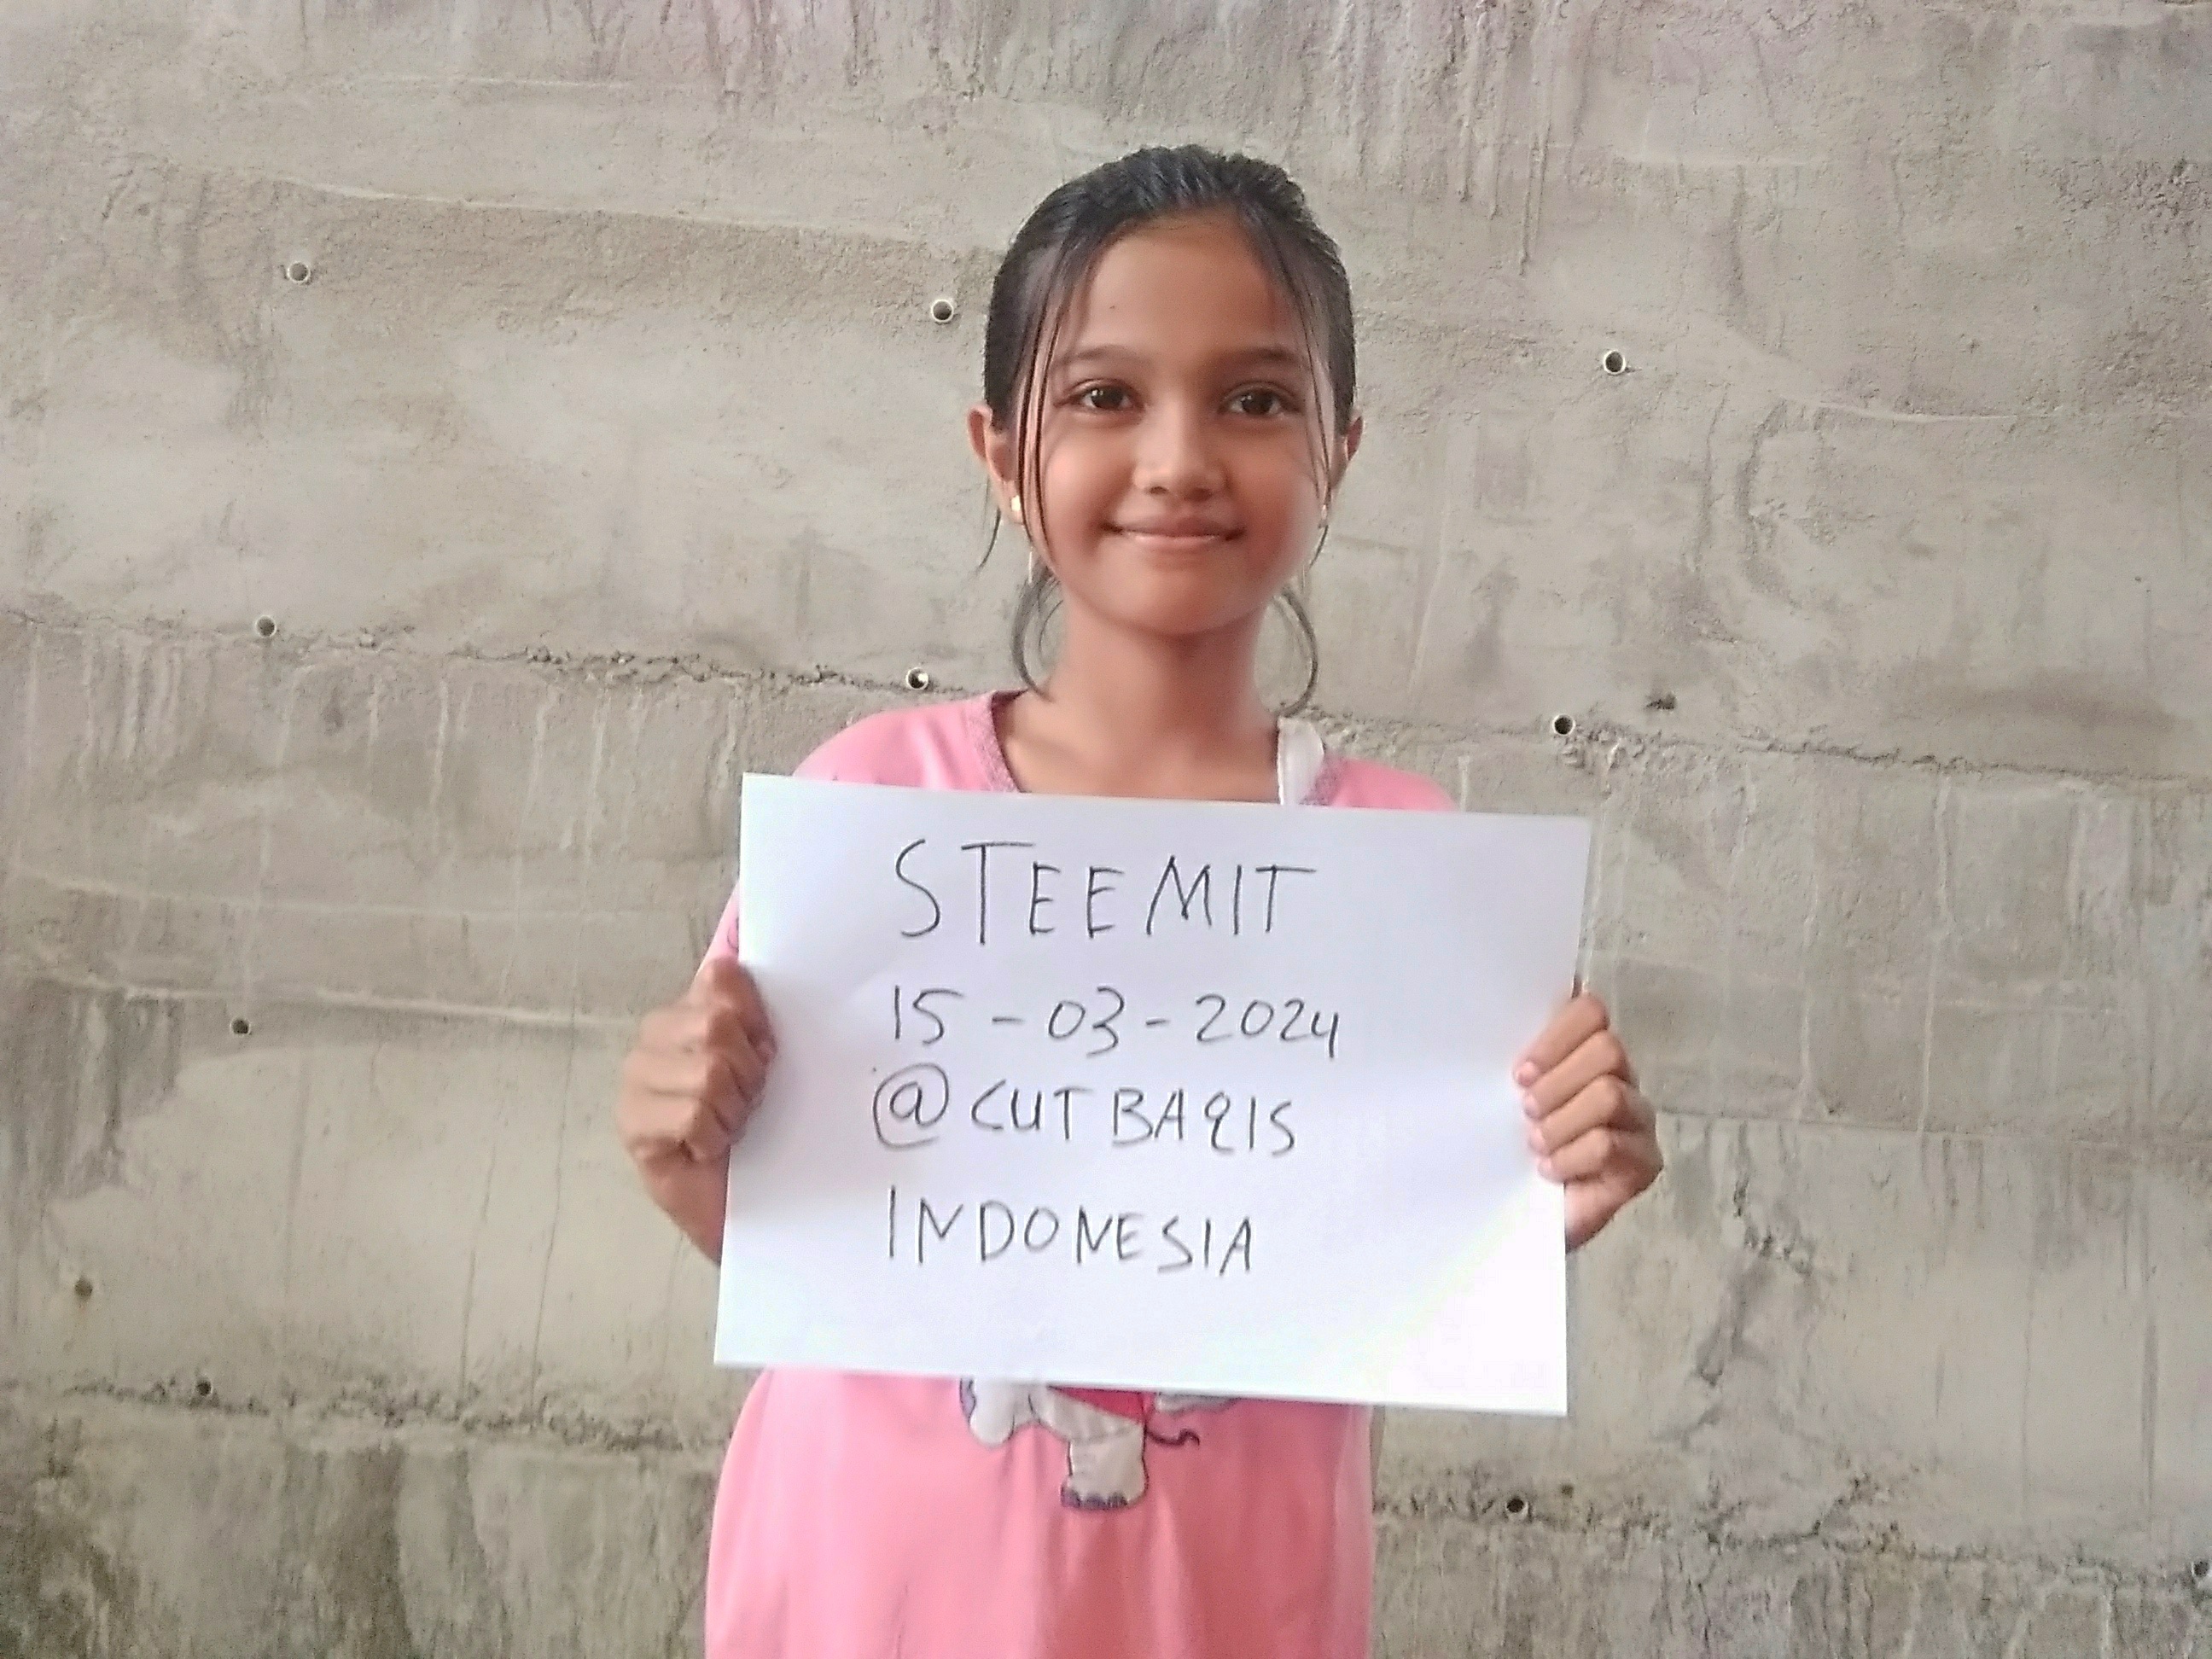 STEEMIT
15-03-2024
@CUTBAQIS
INDONESIA